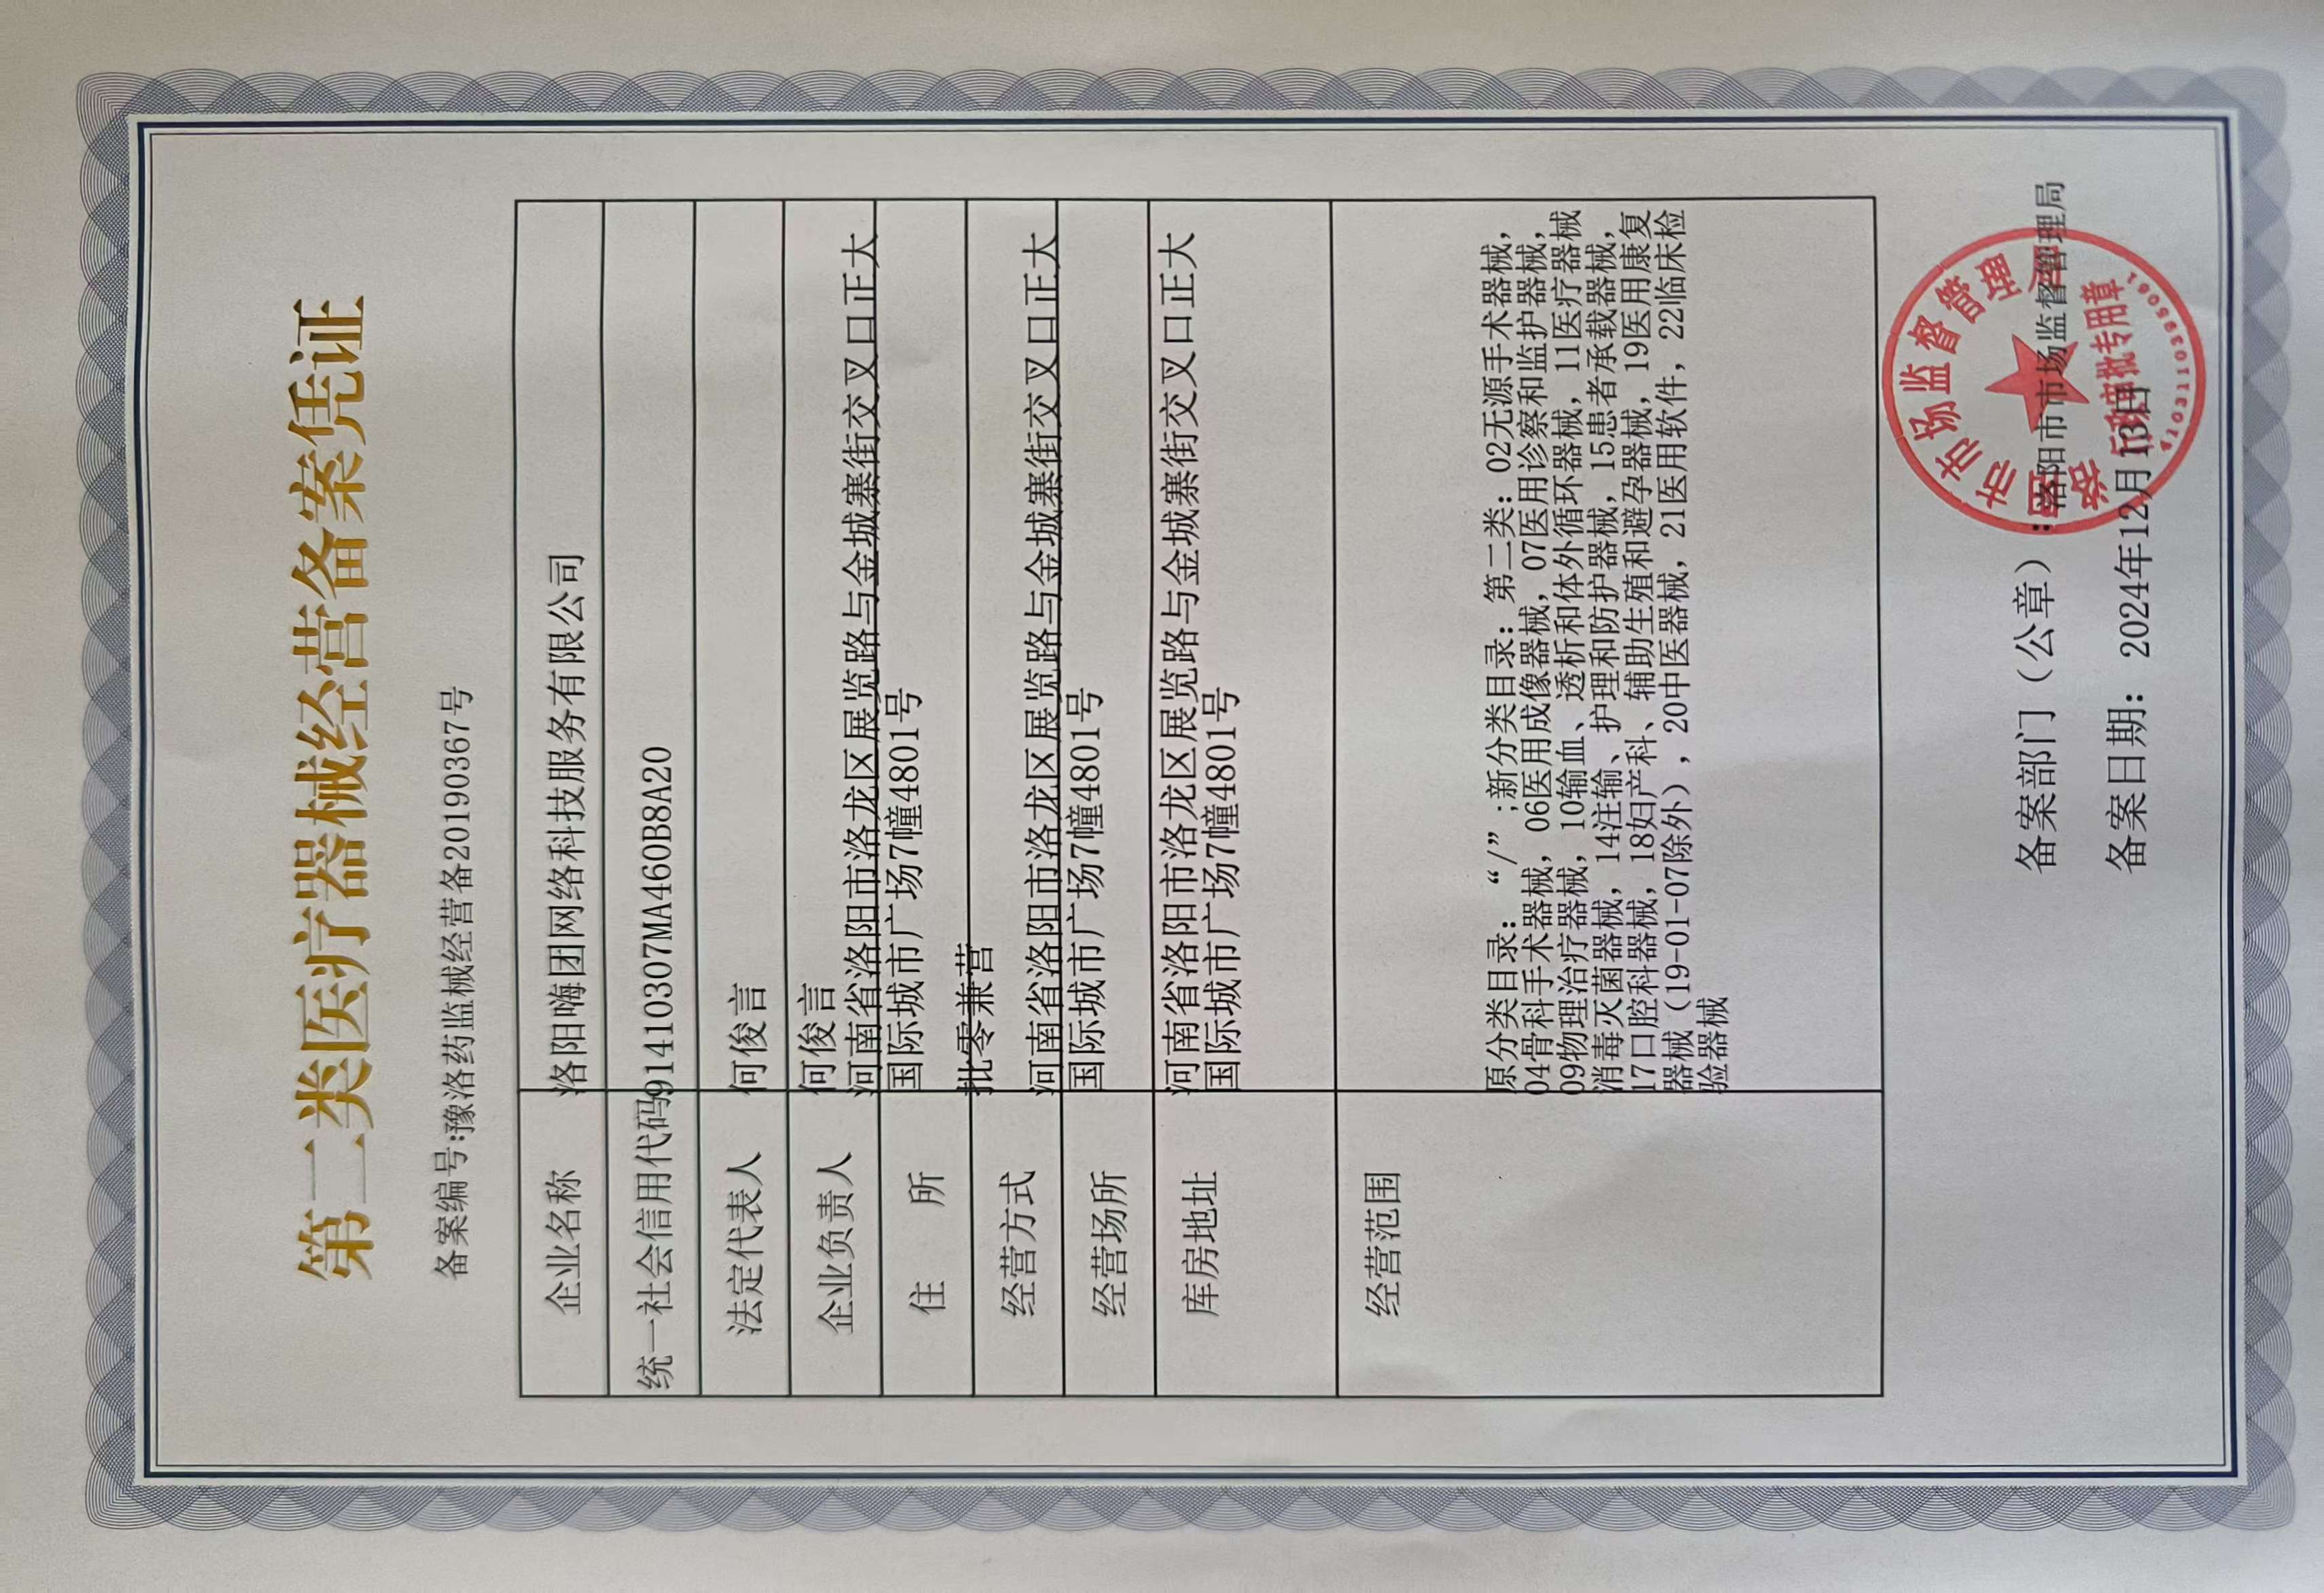 第二类医疗器械经营备案凭证
备案编号:豫洛药监械经营备20190367号
企业名称
洛阳嗨团网络科技服务有限公司
统一社会信用代码
91410307MA460B8A20
法定代表人
何俊言
企业负责人
何俊言
住 所
河南省洛阳市洛龙区展览路与金城寨街交叉口正大
国际城市广场7幢4801号
经营方式
批零兼营
经营场所
河南省洛阳市洛龙区展览路与金城寨街交叉口正大
国际城市广场7幢4801号
库房地址
河南省洛阳市洛龙区展览路与金城寨街交叉口正大
国际城市广场7幢4801号
经营范围
原分类目录：“/”;新分类目录：第二类：02无源手术器械，
04骨科手术器械，06医用成像器械，07医用诊察和监护器械，
09物理治疗器械，10输血、透析和体外循环器械，11医疗器械
消毒灭菌器械，14注输、护理和防护器械，15患者承载器械，
17口腔科器械，18妇产科、辅助生殖和避孕器械，19医用康复
器械（19-01-07除外），20中医器械，21医用软件，22临床检
验器械
备案部门（公章）：洛阳市市场监督管理局
备案日期：2024年12月13日
洛阳市市场监督管理局
行政审批专用章